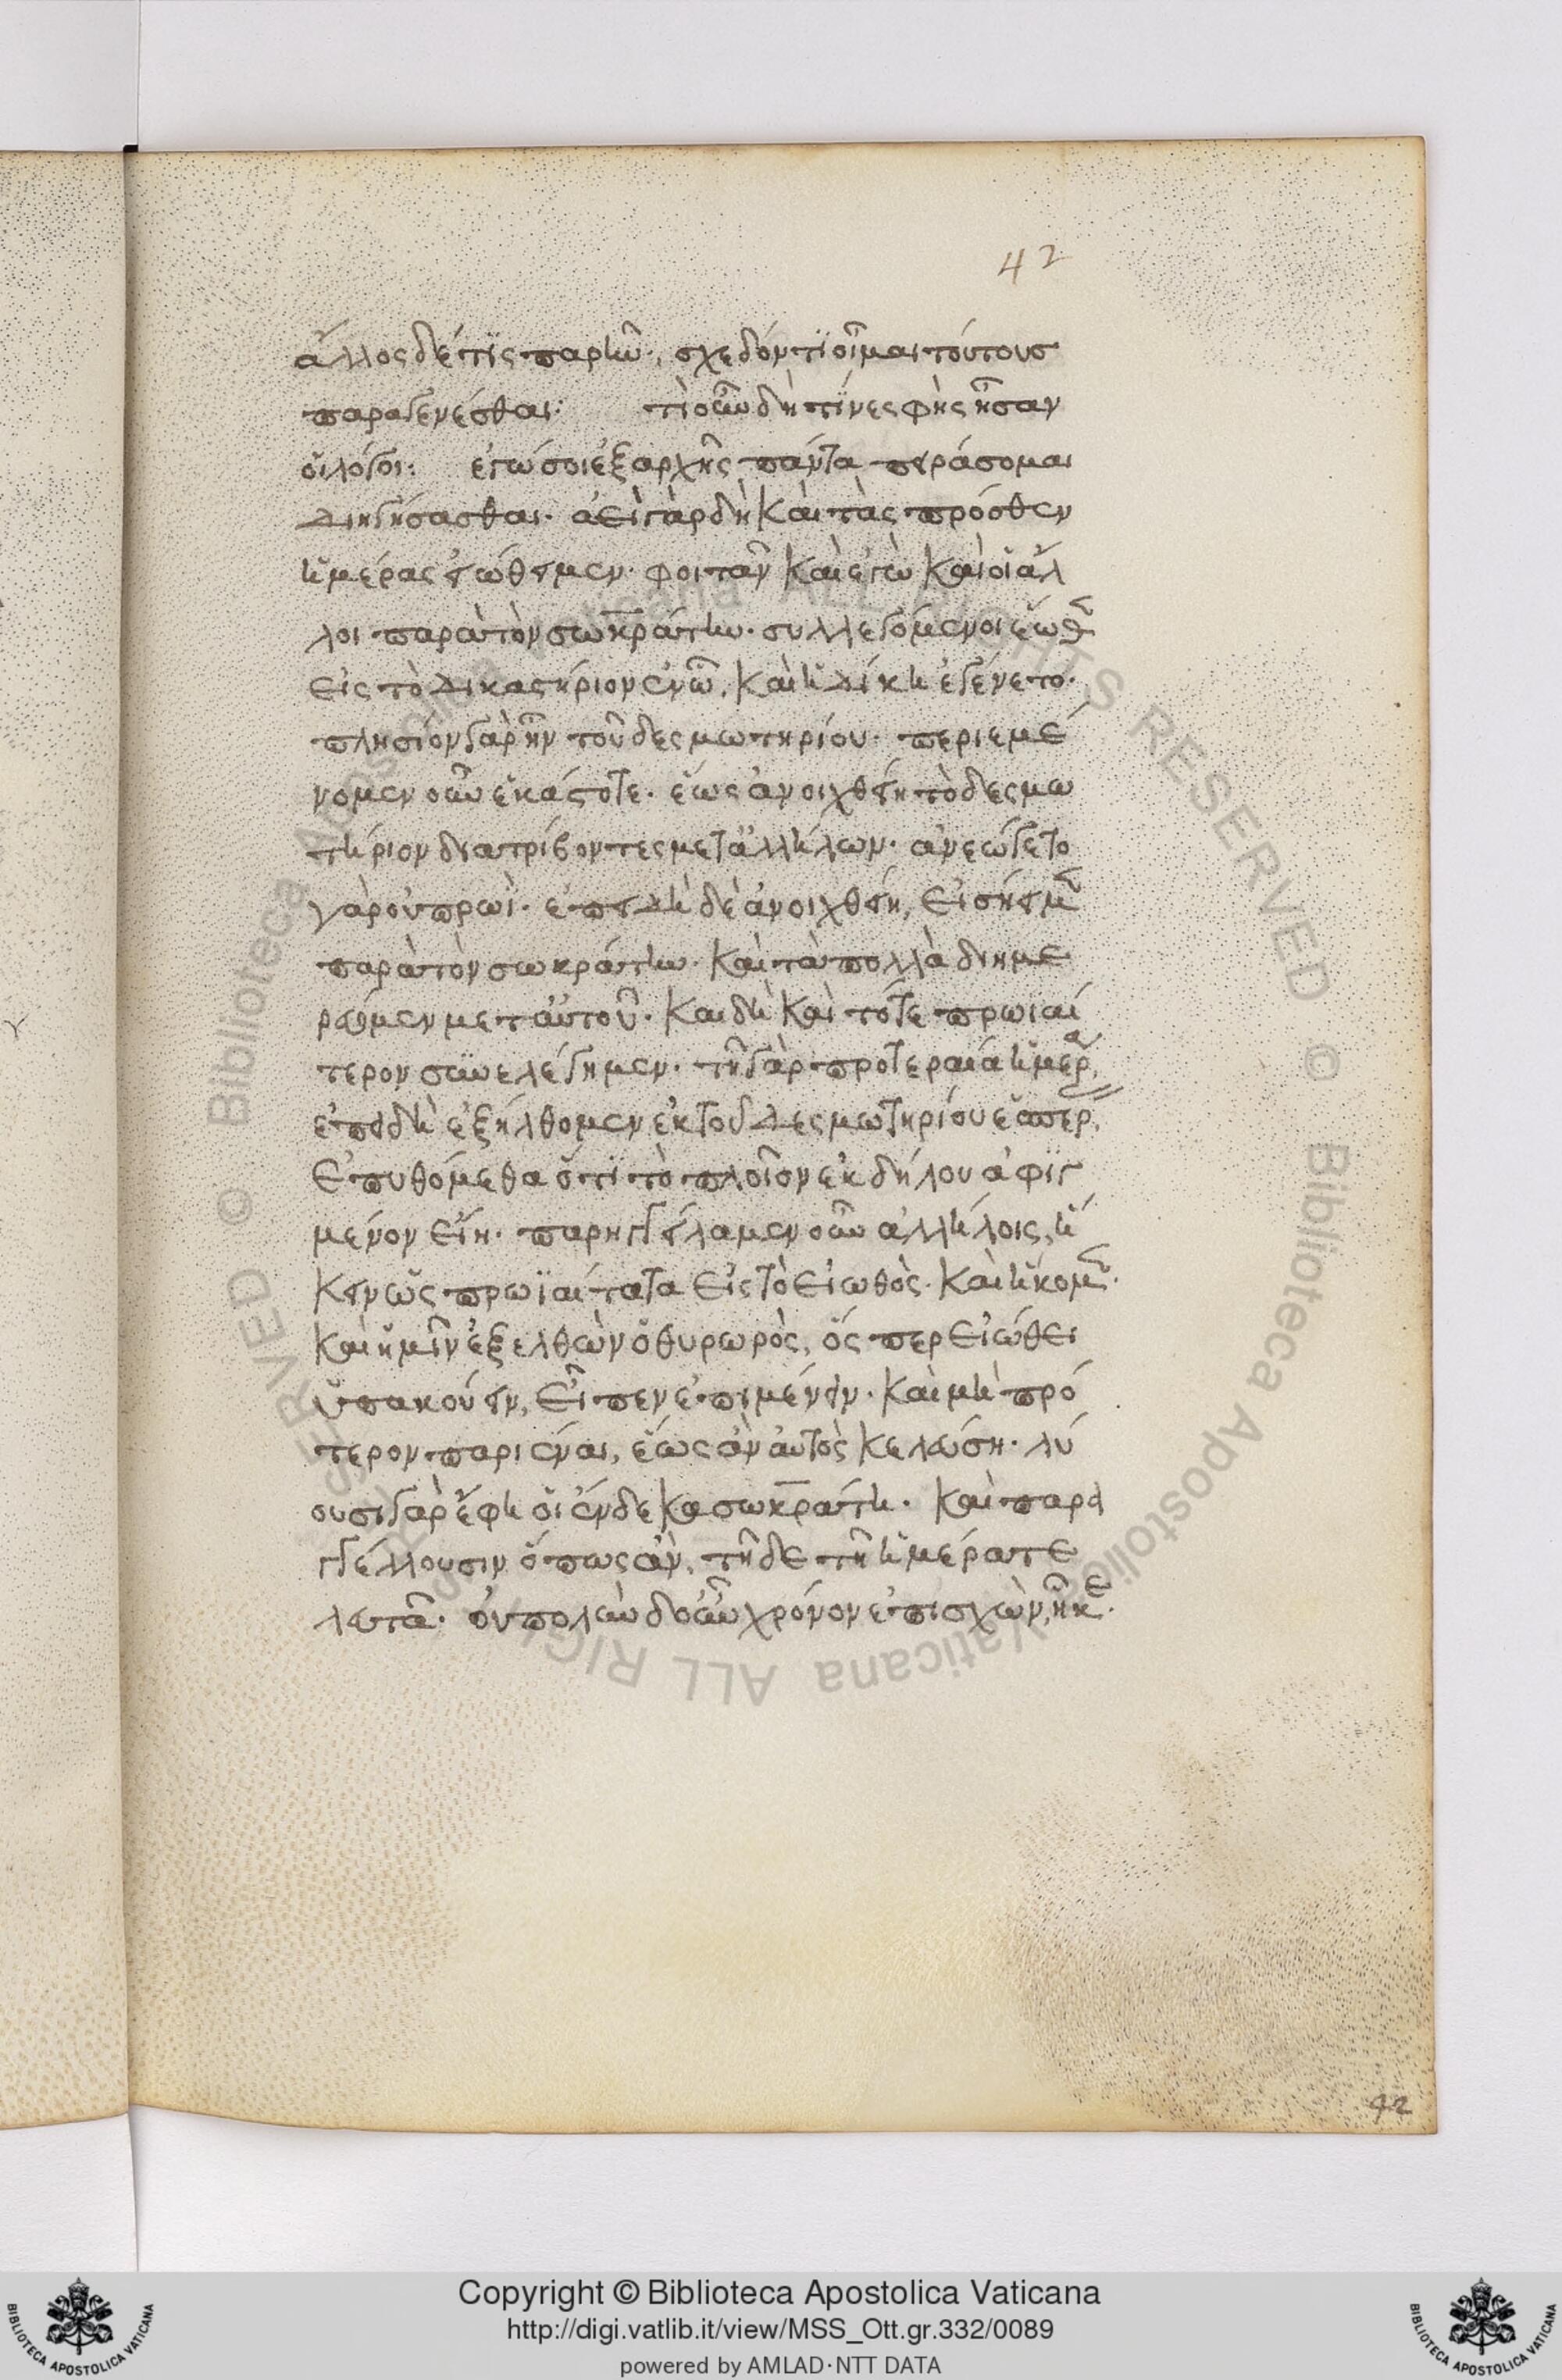 42
ἄλλος δέ τις παρῆν; σχεδόν τι οἶμαι τούτους
παραγενέσθαι: τί οὖν δὴ τίνες φὴς ἦσαν
οἱ λόγοι: ἐγώ σοι ἐξαρχῆς πάντα πειράσομαι
διηγήσασθαι· ἀεὶ γὰρ δὴ καὶ τὰς πρόσθεν
ἡμέρας εἰώθειμεν· φοιτᾶν καὶ ἐγὼ καὶ οἱ ἄλ
λοι παρὰ τὸν σωκράτην· συλλεγόμενοι ἕωθ
εἰς τὸ δικαστήριον ἐν ᾧ, καὶ ἡ δίκη ἐγένετο·
πλησίον γὰρ ἦν τοῦ δεσμωτηρίου· περιεμέ
νομεν οὖν ἑκάστοτε· ἕως ἀνοιχθείη τὸ δεσμω
τήριον διατρίβοντες μετ ἀλλήλων· ἀνεώγετο
γὰρ οὐ πρωί· ἐπειδὴ δὲ ἀνοιχθείη, εἰσῄειμ
παρὰ τὸν σωκράτην· καὶ τὰ πολλὰ διημε
ρεύομεν μετ αὐτοῦ· καὶ δὴ καὶ τότε πρωιαί
τερον συνελέγημεν· τῇ γὰρ προτεραίᾳ ἡμέρα,
ἐπειδὴ ἐξήλθομεν ἐκ τοῦ δεσμωτηρίου ἑσπέρ,
ἐπυθόμεθα ὅτι τὸ πλοῖον ἐκ δήλου ἀφιγ
μένον εἴη· παρηγγείλαμεν οὖν ἀλλήλοις, ἥ
κειν ὡς πρωϊαίτατα εἰς τὸ εἰωθός· καὶ ἥκομ·
καὶ ἡμῖν ἐξελθὼν ὁ θυρωρὸς, ὅσπερ εἰώθει
ὑπακούειν, εἶπεν ἐπιμένειν· καὶ μὴ πρό
τερον παριέναι, ἕως ἂν αὐτὸς κελεύσῃ· λύ
ουσι γὰρ ἔφη οἱ ἕνδεκα σωκράτη· καὶ παρα
γγέλλουσιν ὅπως ἂν, τῇδε τῇ ἡμέρα τε
λευτᾷ· οὐ πολὺν δ οὖν χρόνον ἐπισχὼν, ἧκε·
42
Copyright © Biblioteca Apostolica Vaticana
http://digi.vatlib.it/view/MSS_Ott.gr.332/0089
powered by AMLAD·NTT DATA
BIBLIOTECA APOSTOLICA VATICANA
BIBLIOTECA APOSTOLICA VATICANA